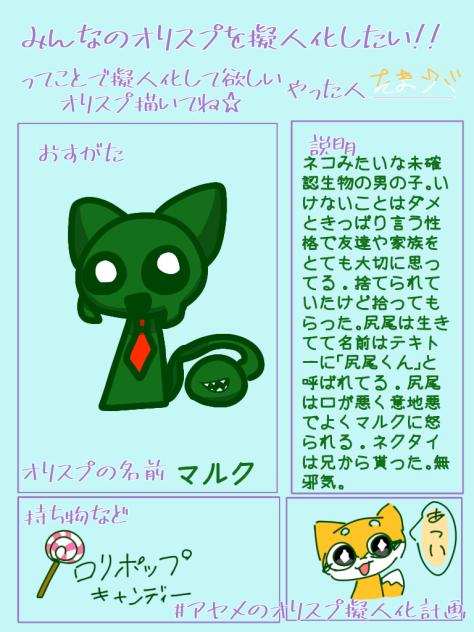 みんなのオリスプを擬人化したい!!
ってことで擬人化して欲しい
オリスプ描いてね☆
やった人
おすがた
説明
ネコみたいな未確
認生物の男の子。い
けないことはダメ
ときっぱり言う性
格で友達や家族を
とても大切に思っ
てる．捨てられて
いたけど拾っても
らった。尻尾は生き
てて名前はテキト
ーに「尻尾くん」と
呼ばれてる．尻尾
は口が悪く意地悪
でよくマルクに怒
られる．ネクタイ
は兄から貰った。無
邪気。
オリスプの名前 マルク
持ち物など
ロリポップ
キャンディー
あつい
#アヤメのオリスプ擬人化計画